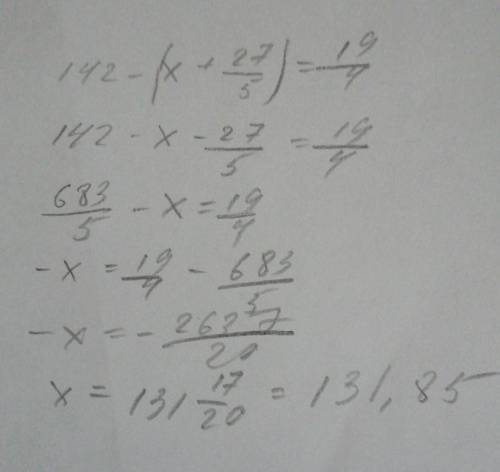 142 - (x + 27/5) = 19/4
142 - x - 27/5 = 19/4
683/5 - x = 19/4
-x = 19/4 - 683/5
-x = - 2637/20
x = 131 17/20 = 131,85